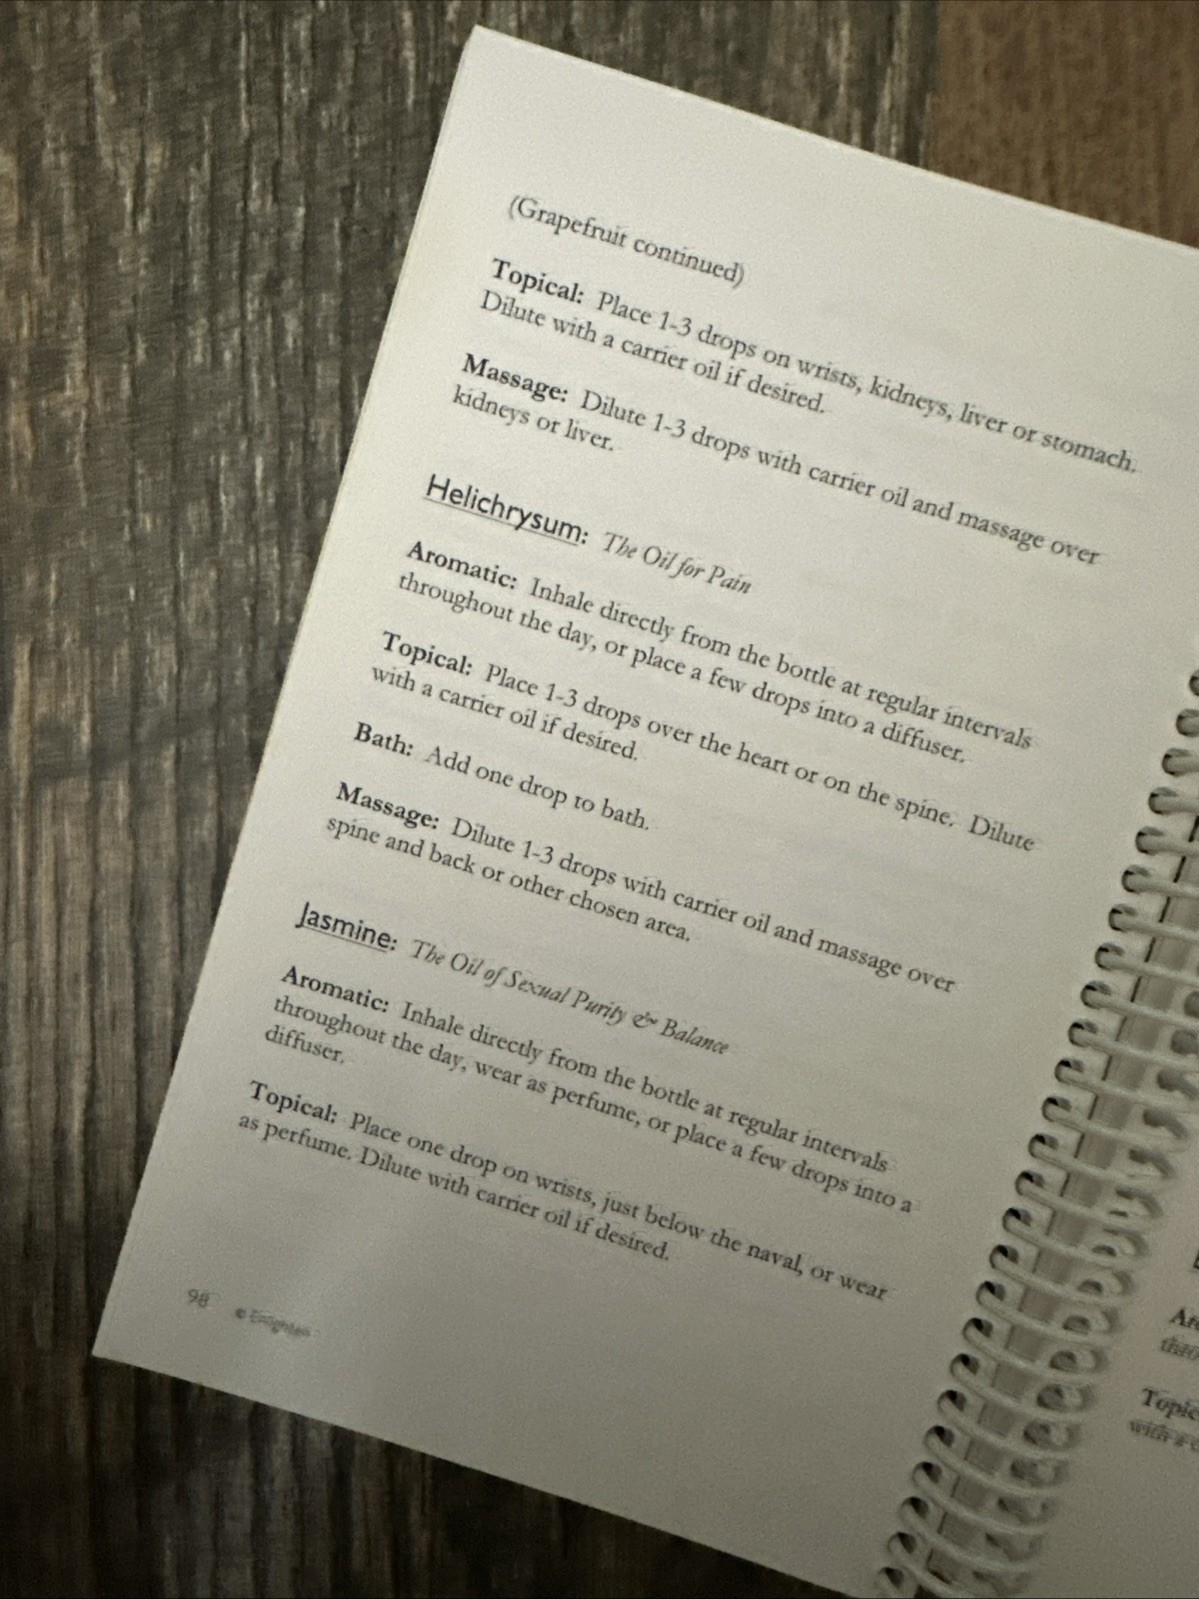 (Grapefruit continued)
Topical: Place 1-3 drops on wrists, kidneys, liver or stomach.
Dilute with a carrier oil if desired.
Massage: Dilute 1-3 drops with carrier oil and massage over
kidneys or liver.
Helichrysum: The Oil for Pain
Aromatic: Inhale directly from the bottle at regular intervals
throughout the day, or place a few drops into a diffuser.
Topical: Place 1-3 drops over the heart or on the spine. Dilute
with a carrier oil if desired.
Bath: Add one drop to bath.
Massage: Dilute 1-3 drops with carrier oil and massage over
spine and back or other chosen area.
Jasmine: The Oil of Sexual Purity & Balance
Aromatic: Inhale directly from the bottle at regular intervals
throughout the day, wear as perfume, or place a few drops into a
diffuser.
Topical: Place one drop on wrists, just below the naval, or wear
as perfume. Dilute with carrier oil if desired.
98 © Enlighten